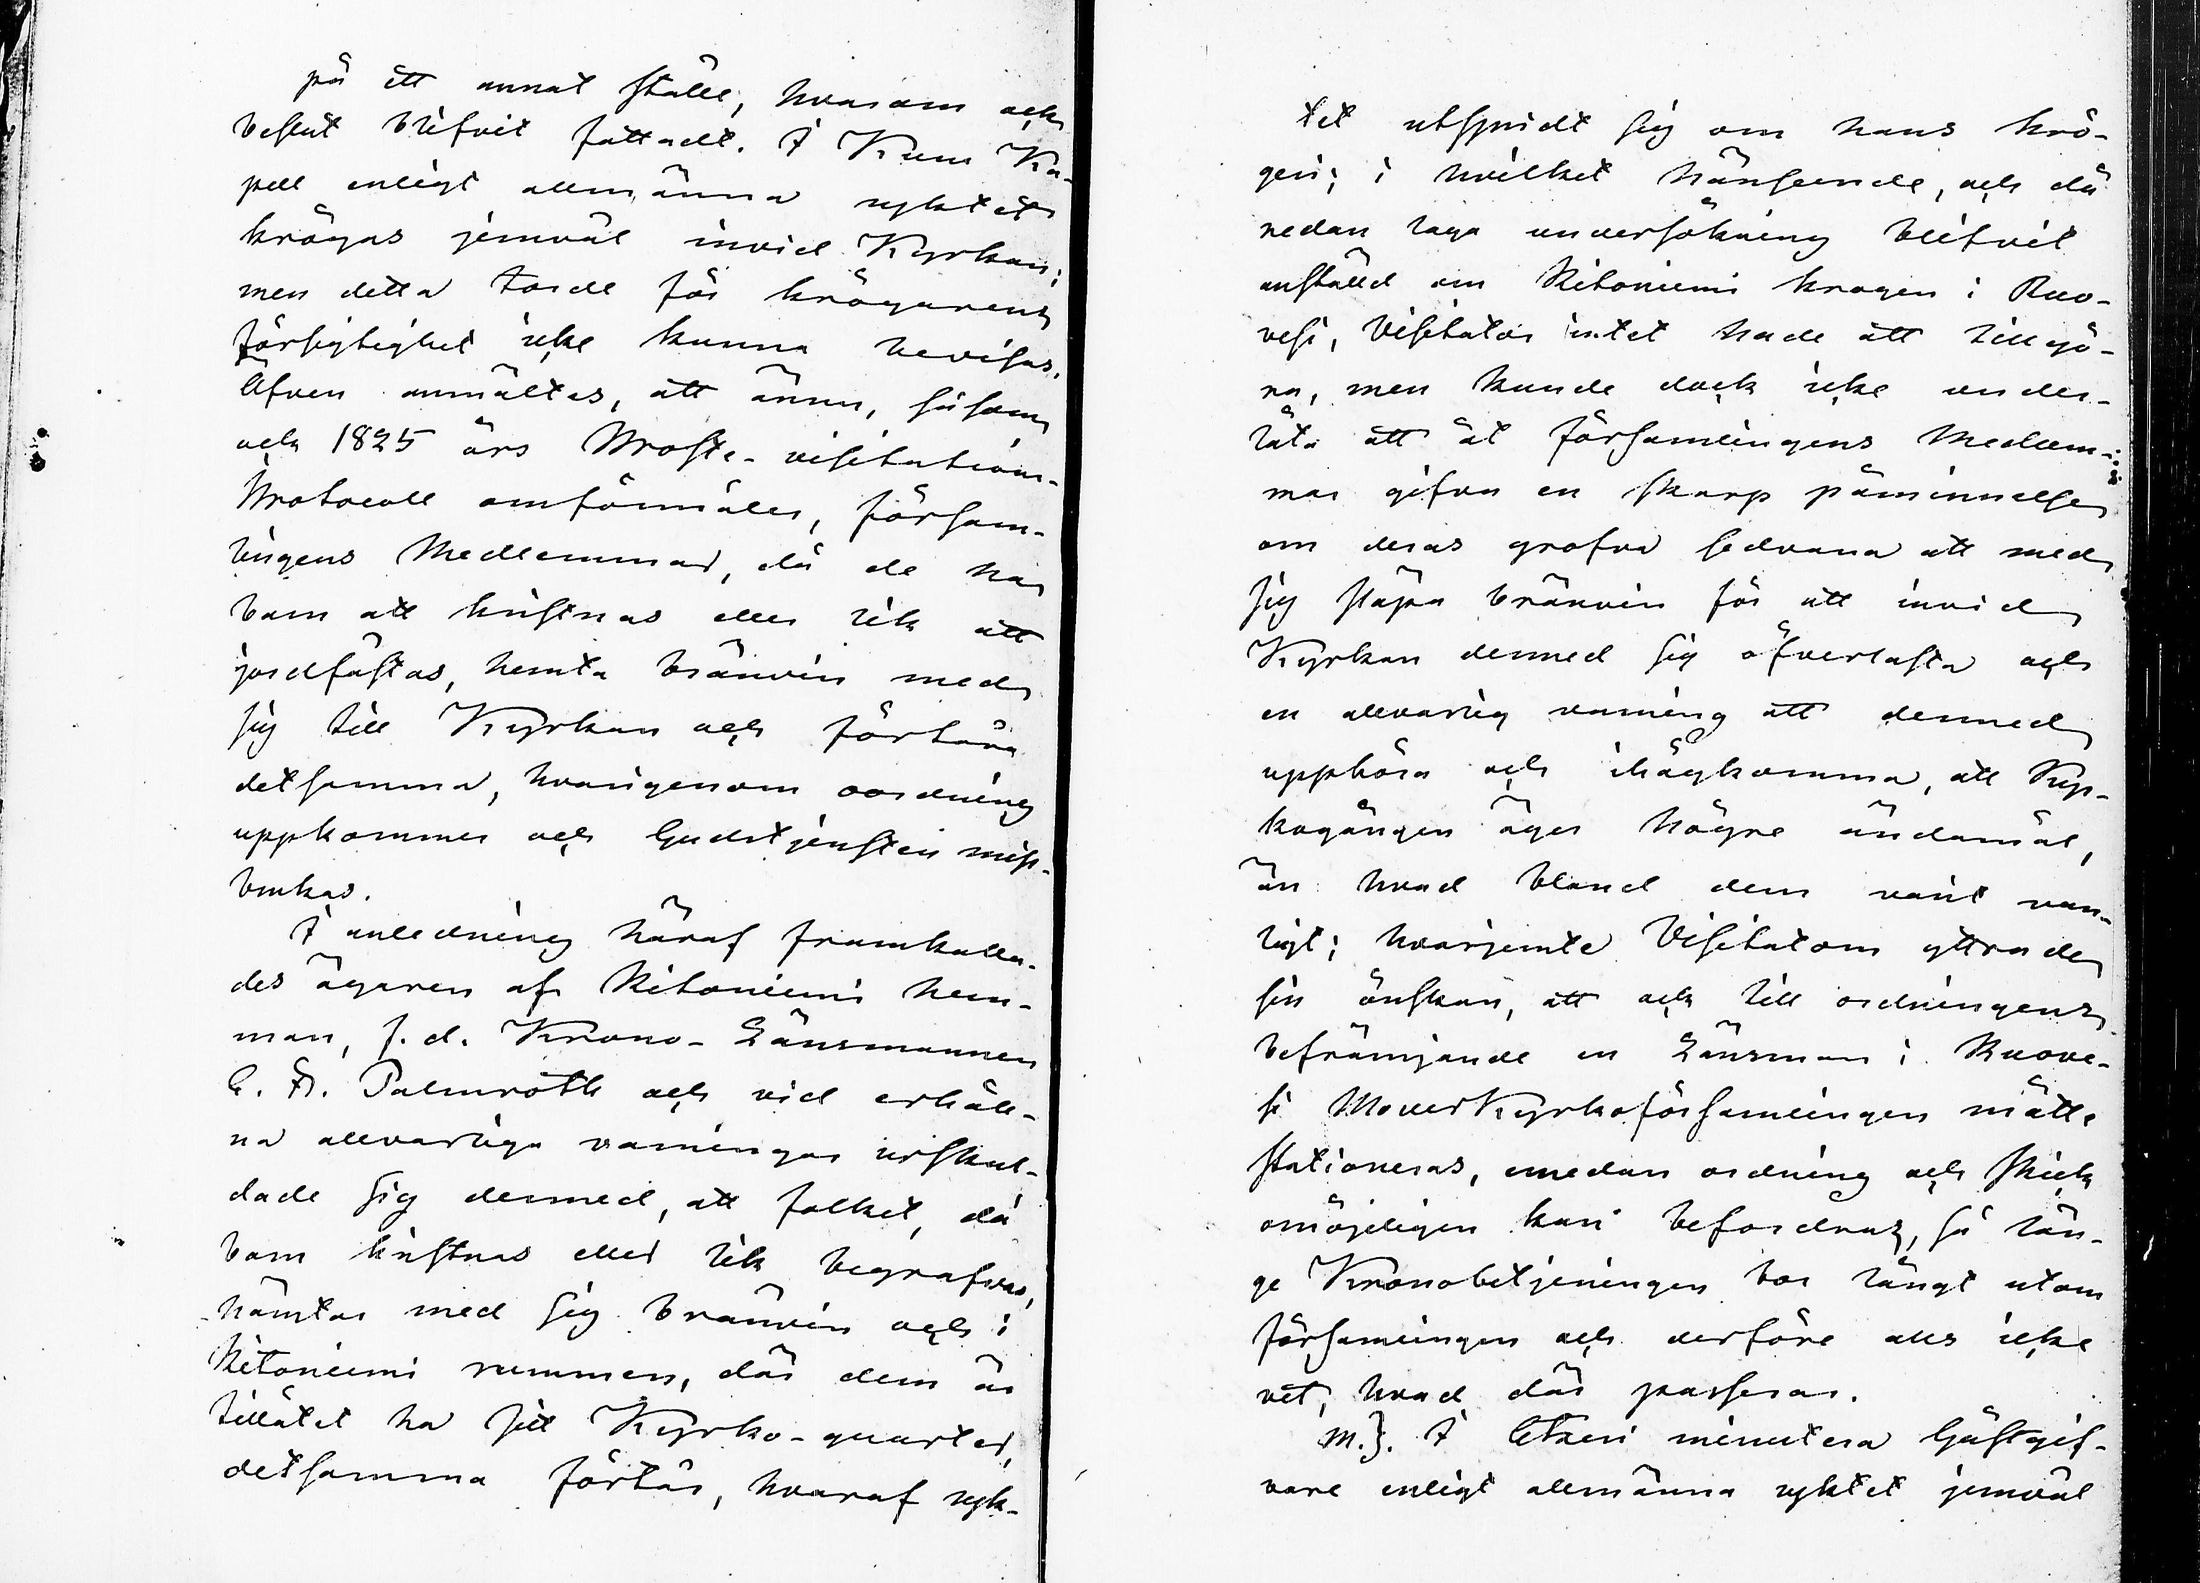 på ett annat ställe, hvarom ock
beslut blifvit fattadt. I Kuru Ka-
pell enligt allmänna ryktet
krögas jemväl invid Kyrkan;
men detta torde för krögarens
försigtighet icke kunna bevisas.
Äfven anmältes, att ännu, såsom
ock 1825 års Proste-visitations-
Protocoll omförmäler, försam-
lingens Medlemmar, då de ha
barn att kristnas eller lik att
jordfästas, hemta bränvin med
sig till Kyrkan och förtära
detsamma, hvarigenom oordning
uppkommer och Gudstjensten miss-
brukas.
I anledning häraf framkalla-
des ägaren af Ritoniemi hem-
man, f. d. Krono-Länsmannen
Palmroth och vid erhåll-
na allvarliga varningar urskul-
dade sig dermed, att folket, då
barn kristnas eller lik begrafvas,
hämtar med sig bränvin och i
Ritoniemi rummen, där dem är
tillåtet ha sitt Kyrko-quarter,
detsamma förtär, hvaraf ryk-
tet utspridt sig om hans krö-
geri; i hvilket hänseende, och då
redan laga undersökning blifvit
anställd om Ritoniemi krogen i Ruo-
vesi, Visitator intet hade att tillgö-
ra, men kunde dock icke under-
låta att åt församlingens Medlem-
mar gifva en skarp påminnelse
om deras grofva sedvana att med
sig släpa bränvin för att invid
Kyrkan dermed sig öfverlasta och
en allvarlig varning att dermed
upphöra och ihågkomma, att Kyr-
kogången äger högre ändamål,
än hvad bland dem varit van-
ligt; hvarjemte Visitatorn yttrade
sin önskan, att ock till ordningens
befrämjande en Länsman i Ruove-
si Moderkyrkoförsamlingen måtte
stationeras, emedan ordning och skick
omöjeligen kan befordras, så län-
ge Kronobetjeningen bor långt utom
församlingen och derföre alls icke
vet, hvad där passerar.
m.). I Etkeri minutera Gästgif-
vare enligt allmänna ryktet jemväl